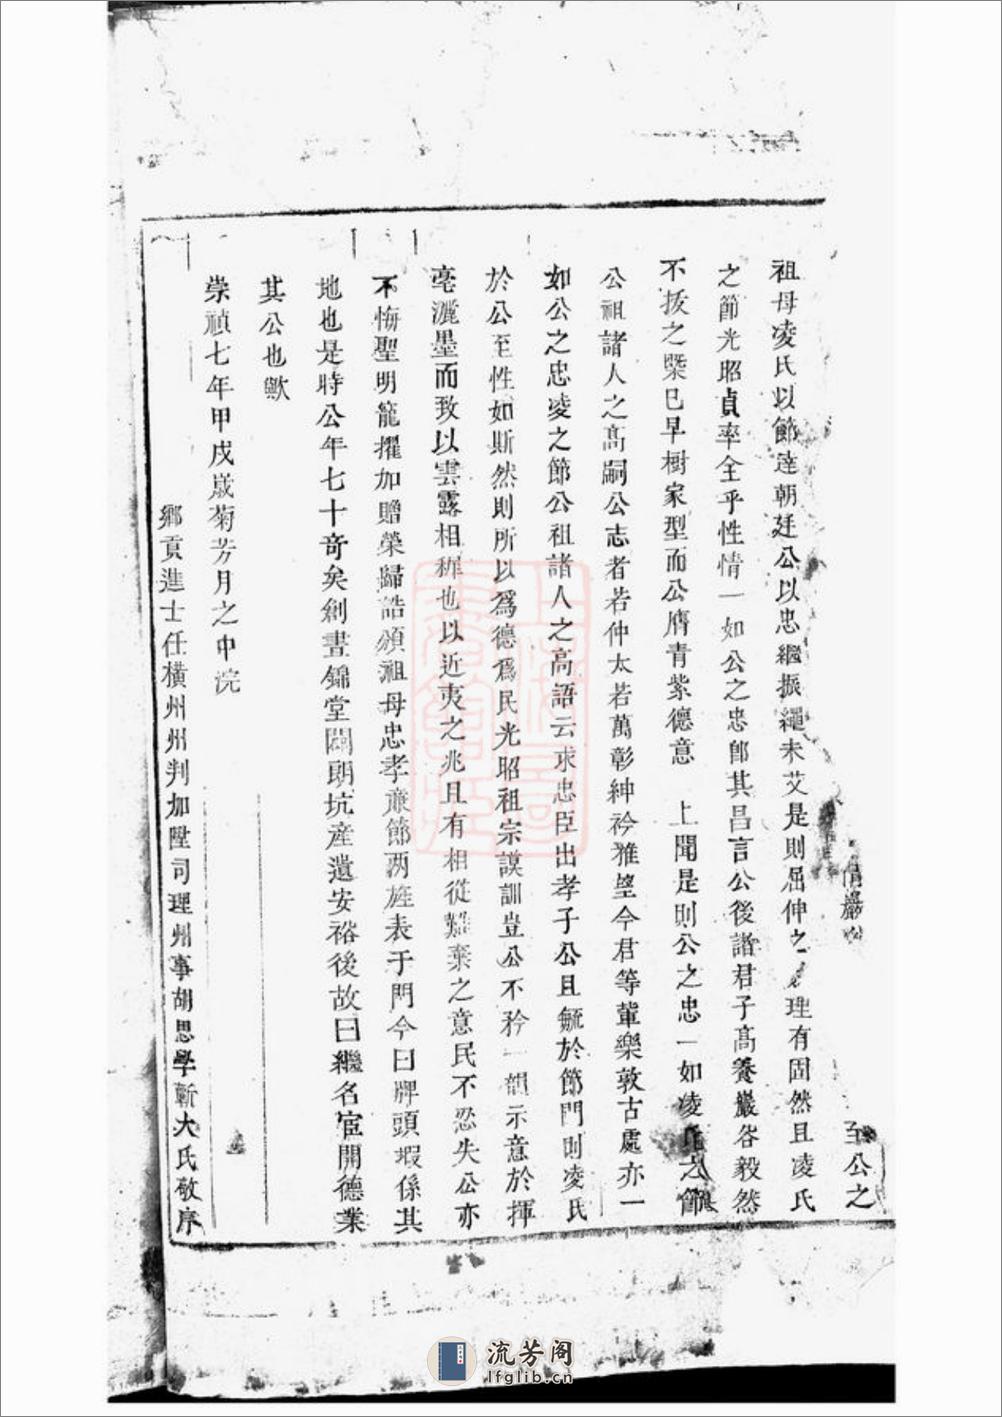 巖
至公之
祖母凌氏以節達朝廷公以忠繼振繩未艾是則屈伸之理有固然且凌氏
之節光昭貞率全乎性情一如公之忠卽其昌言公後諸君子高養巖谷毅然
不拔之槩已早樹家型而公膺青紫德意 上聞是則公之忠一如凌氏之節
公祖諸人之高嗣公志者若仲太若萬彰紳衿雅望今君等輩樂敦古處亦一
如公之忠凌之節公祖諸人之高語云求忠臣出孝子公且毓於節門則凌氏
於公至性如斯然則所以爲德爲民光昭祖宗謨訓豈公不矜一韻示意於揮
毫灑墨而致以雲露相 也以近夷之兆且有相從 棄之意民不忍失公亦
不悔聖明寵擢加贈榮歸誥頒祖母忠孝廉節兩旌表于門今曰牌頭瑕係其
地也是時公年七十奇矣創晝錦堂闢朗坑產遺安裕後故曰繼名宦開德業
其公也歟
崇禎七年甲戌歲菊芳月之中浣
鄉貢進士任橫州州判加陞司理州事胡思學斬大氏敬序
流芳阁
lfglib.cn